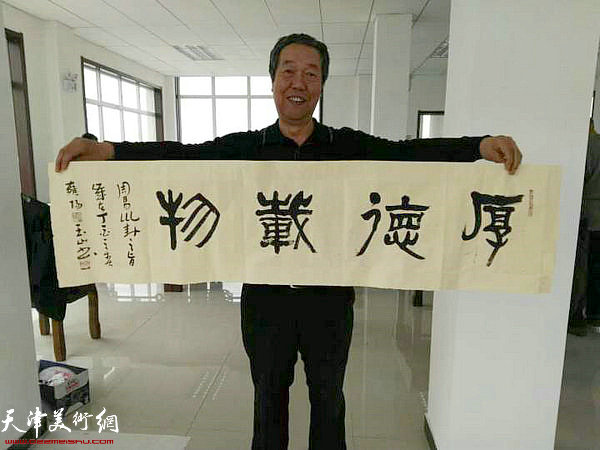 厚德載物
周易八卦之旨
歲在丁酉之春
玉山書
天津美術網
www.022meishu.com